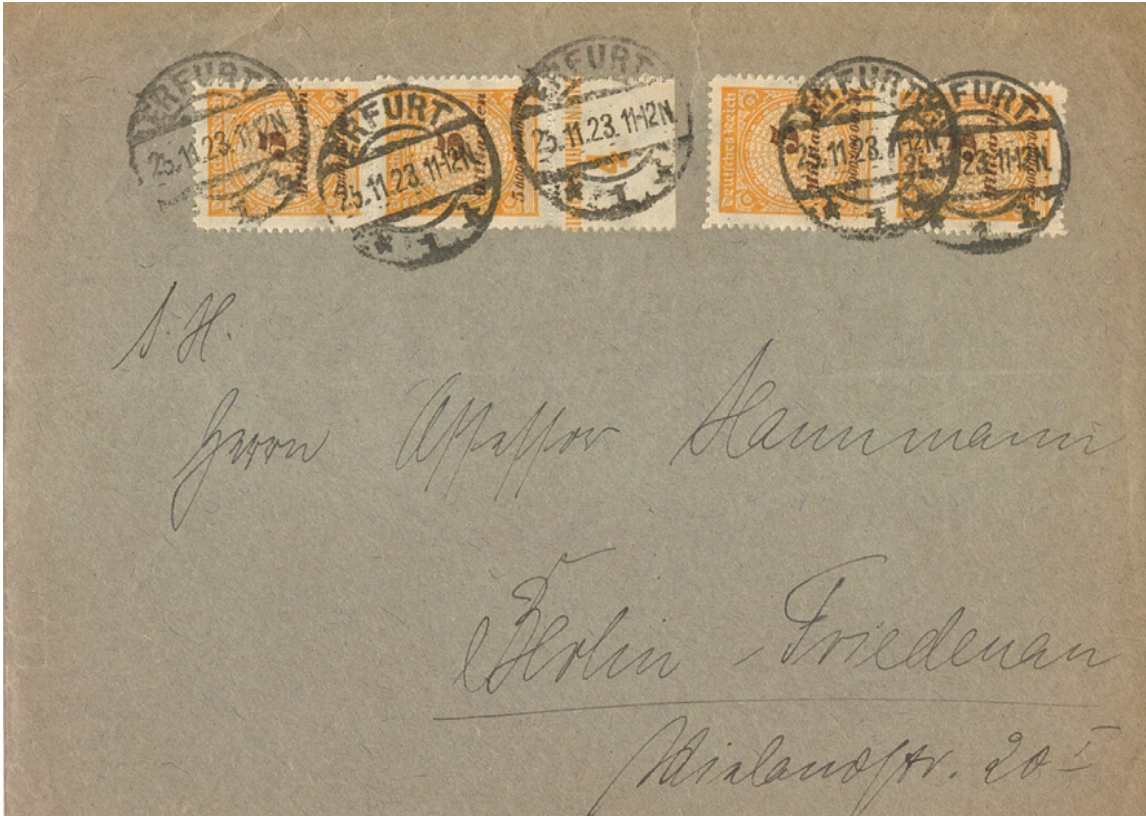 ERFURT
25.11.23.11-12N.
* 1 *
ERFURT
25.11.23.11-12N.
* 1 *
ERFURT
25.11.23.11-12N.
* 1 *
ERFURT
25.11.23.11-12N.
* 1 *
ERFURT
25.11.23.11-12N.
* 1 *
Deutsches Reich
5
Milliarden
S. H.
Herrn Assessor Hannmann
Berlin-Friedenau
Wielandstr. 20 I